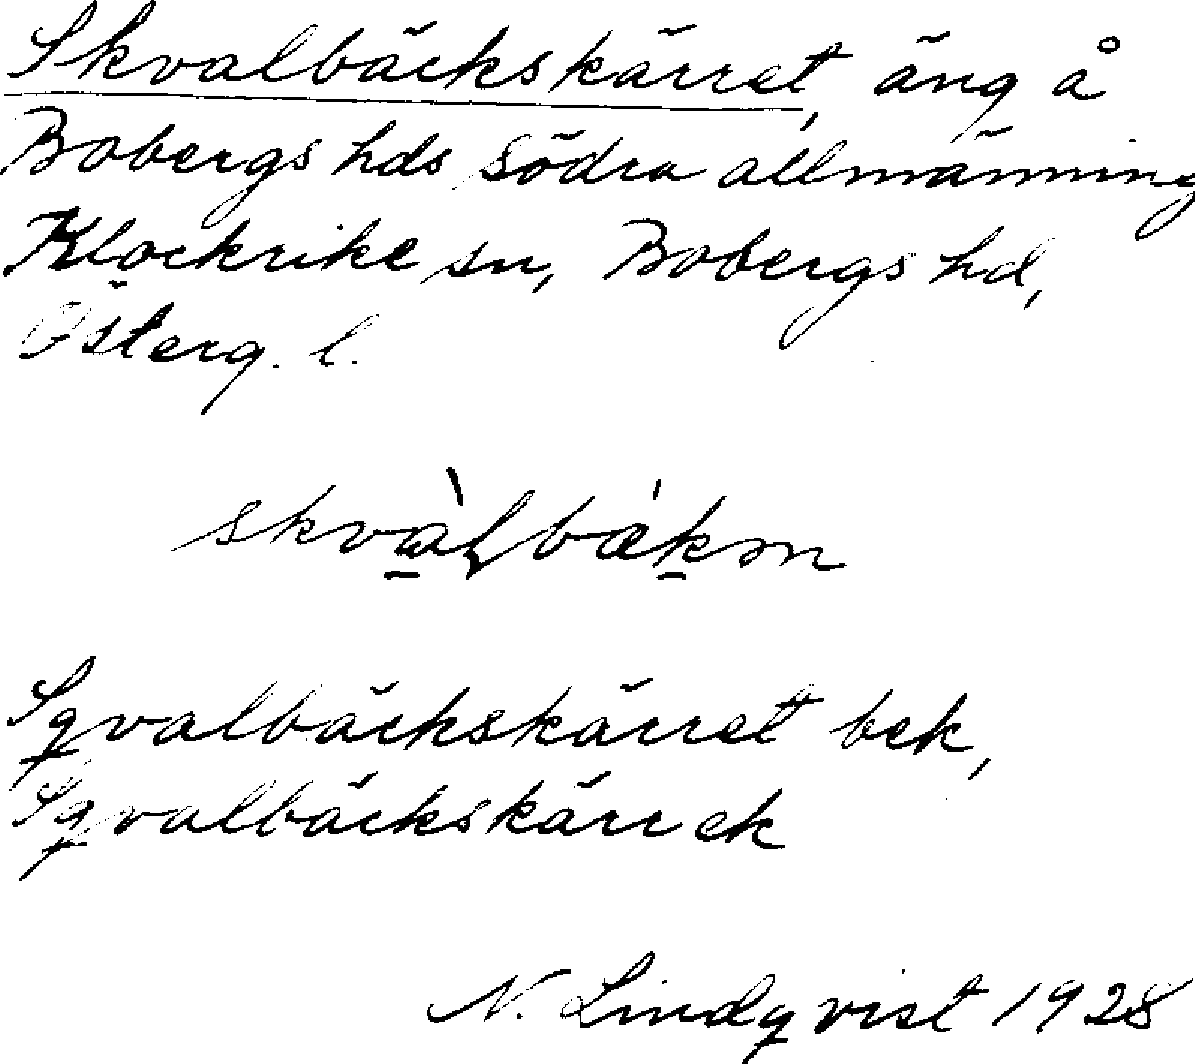 Skvalbäckskärret, äng å
Bobergs hds södra allmänning
Klockrike sn, Bobergs hd,
Österg. l.
Sqvalbäckskärret bek,
Sqvalbäckskärr ek
N. Lindqvist 1928